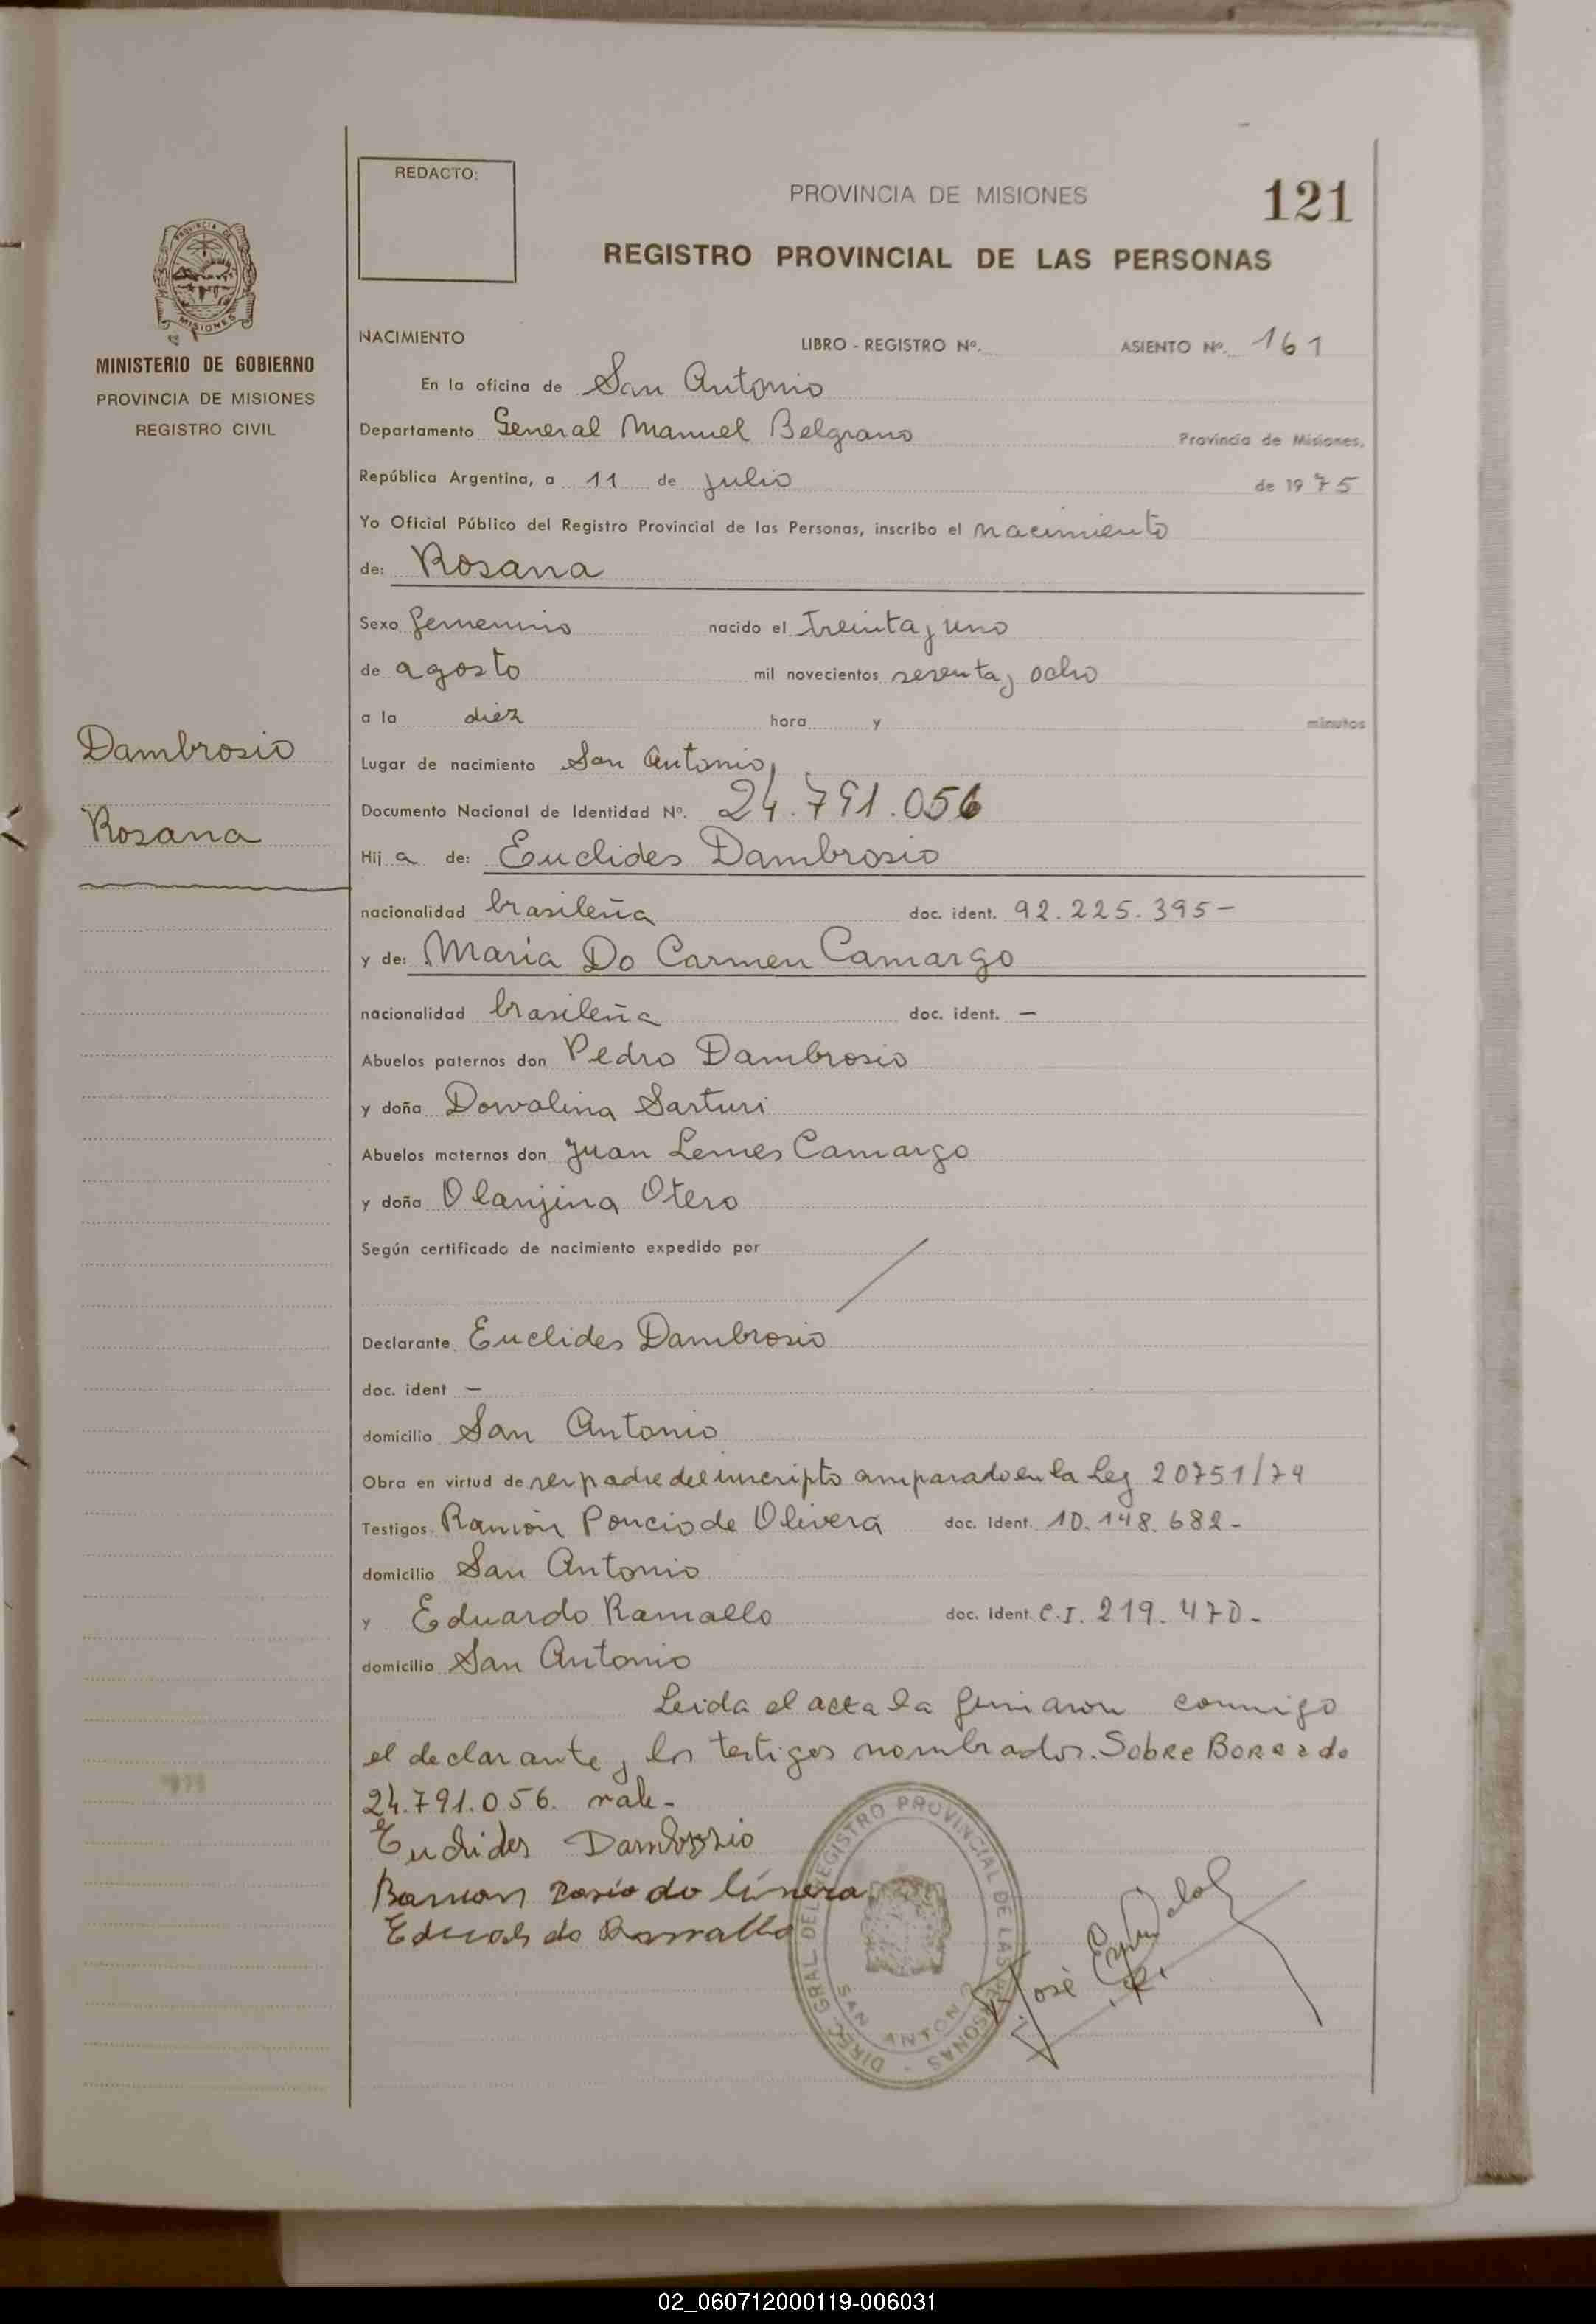 REDACTO:
PROVINCIA DE MISIONES
121
REGISTRO PROVINCIAL DE LAS PERSONAS
PROVINCIA DE
MISIONES
MINISTERIO DE GOBIERNO
PROVINCIA DE MISIONES
REGISTRO CIVIL
NACIMIENTO LIBRO - REGISTRO Nº. ASIENTO Nº. 161
En la oficina de San Antonio
Departamento General Manuel Belgrano Provincia de Misiones,
República Argentina, a 11 de julio de 1975
Yo Oficial Público del Registro Provincial de las Personas, inscribo el nacimiento
de: Rosana
Sexo femenino nacido el treinta y uno
de agosto mil novecientos sesenta y ocho
a la diez hora y minutos
Dambrosio
Rosana
Lugar de nacimiento San Antonio
Documento Nacional de Identidad Nº. 24.791.056
Hij a de: Euclides Dambrosio
nacionalidad brasileña doc. ident. 92.225.395-
y de: María Do Carmen Camargo
nacionalidad brasileña doc. ident. -
Abuelos paternos don Pedro Dambrosio
y doña Dorvalina Sarturi
Abuelos maternos don Juan Lemes Camargo
y doña Olanjina Otero
Según certificado de nacimiento expedido por
Declarante Euclides Dambrosio
doc. ident -
domicilio San Antonio
Obra en virtud de ser padre del inscripto amparado en la Ley 20751/74
Testigos Ramón Poncio de Olivera doc. ident. 10.148.682-
domicilio San Antonio
y Eduardo Ramallo doc. ident. C.I. 219.470-
domicilio San Antonio
Leida el acta la firmaron conmigo
el declarante y los testigos nombrados. Sobre Borrado
24.791.056. vale-
Euclides Dambrosio
Eduardo Ramallo
José
DIREC. GRAL DEL REGISTRO PROVINCIAL DE LAS PERSONAS -
SAN ANTONIO
02_060712000119-006031